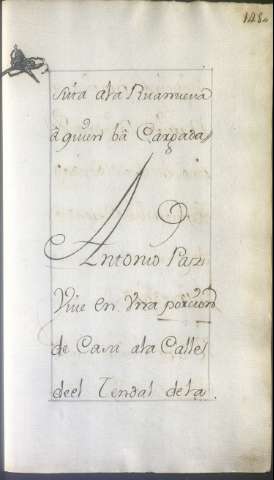 128
sita ala Ruanueva
â quien bâ Cargada
Antonio Paz
Vive en Vna porcion
de Casa ala Calle
deel Tendal dela